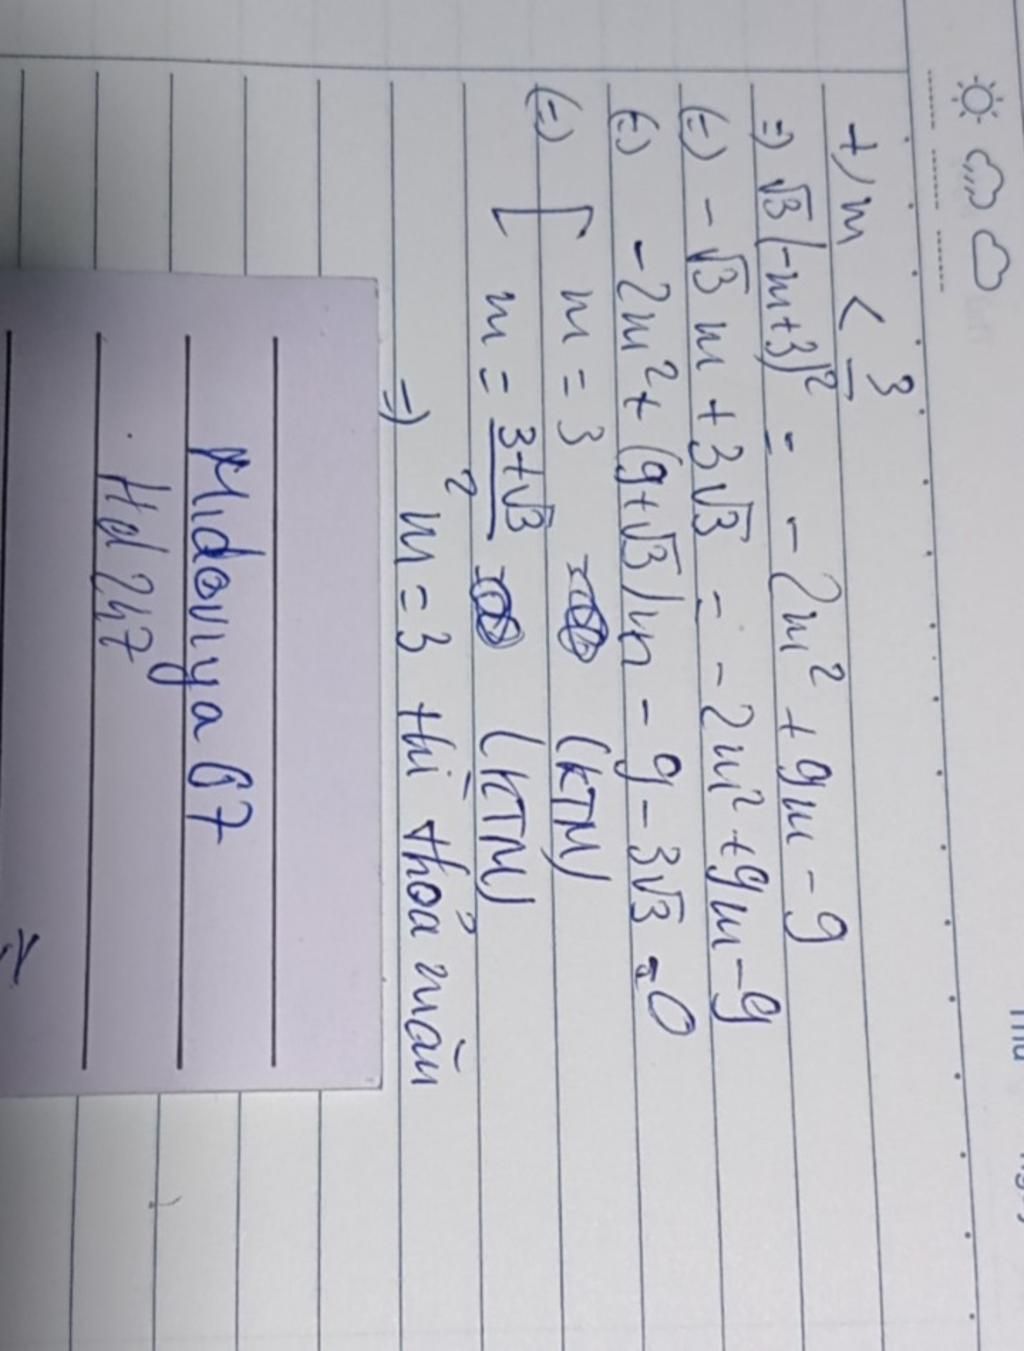 +) m < 3
⇒ √3(-m+3)² = -2m² + 9m - 9
(=) -√3 m + 3√3 = -2m² + 9m - 9
(=) -2m² + (9+√3)m - 9 - 3√3 = 0
(=) [ m = 3 (KTM)
m = 3+√3 / 2 (KTM)
=) m = 3 thì thỏa mãn
Midoriya 67
Hd 247